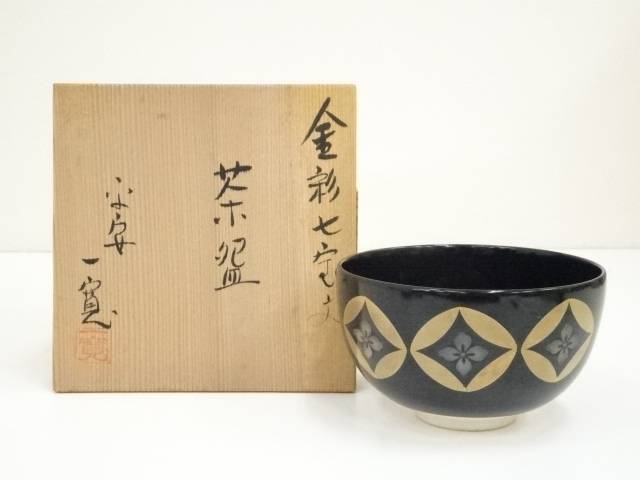 金彩七宝文
茶盌
平安 一寛